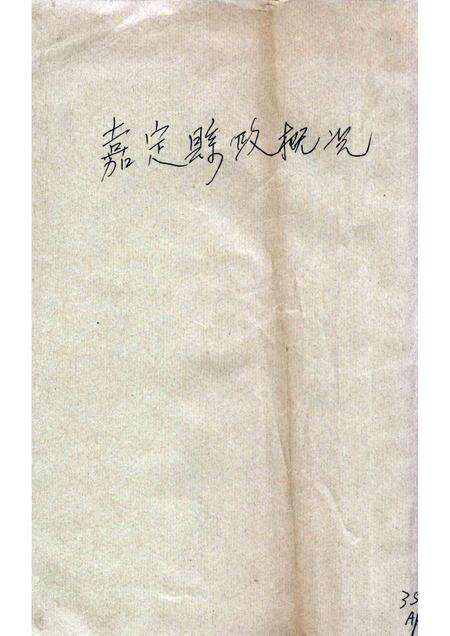 嘉定縣政概况
35